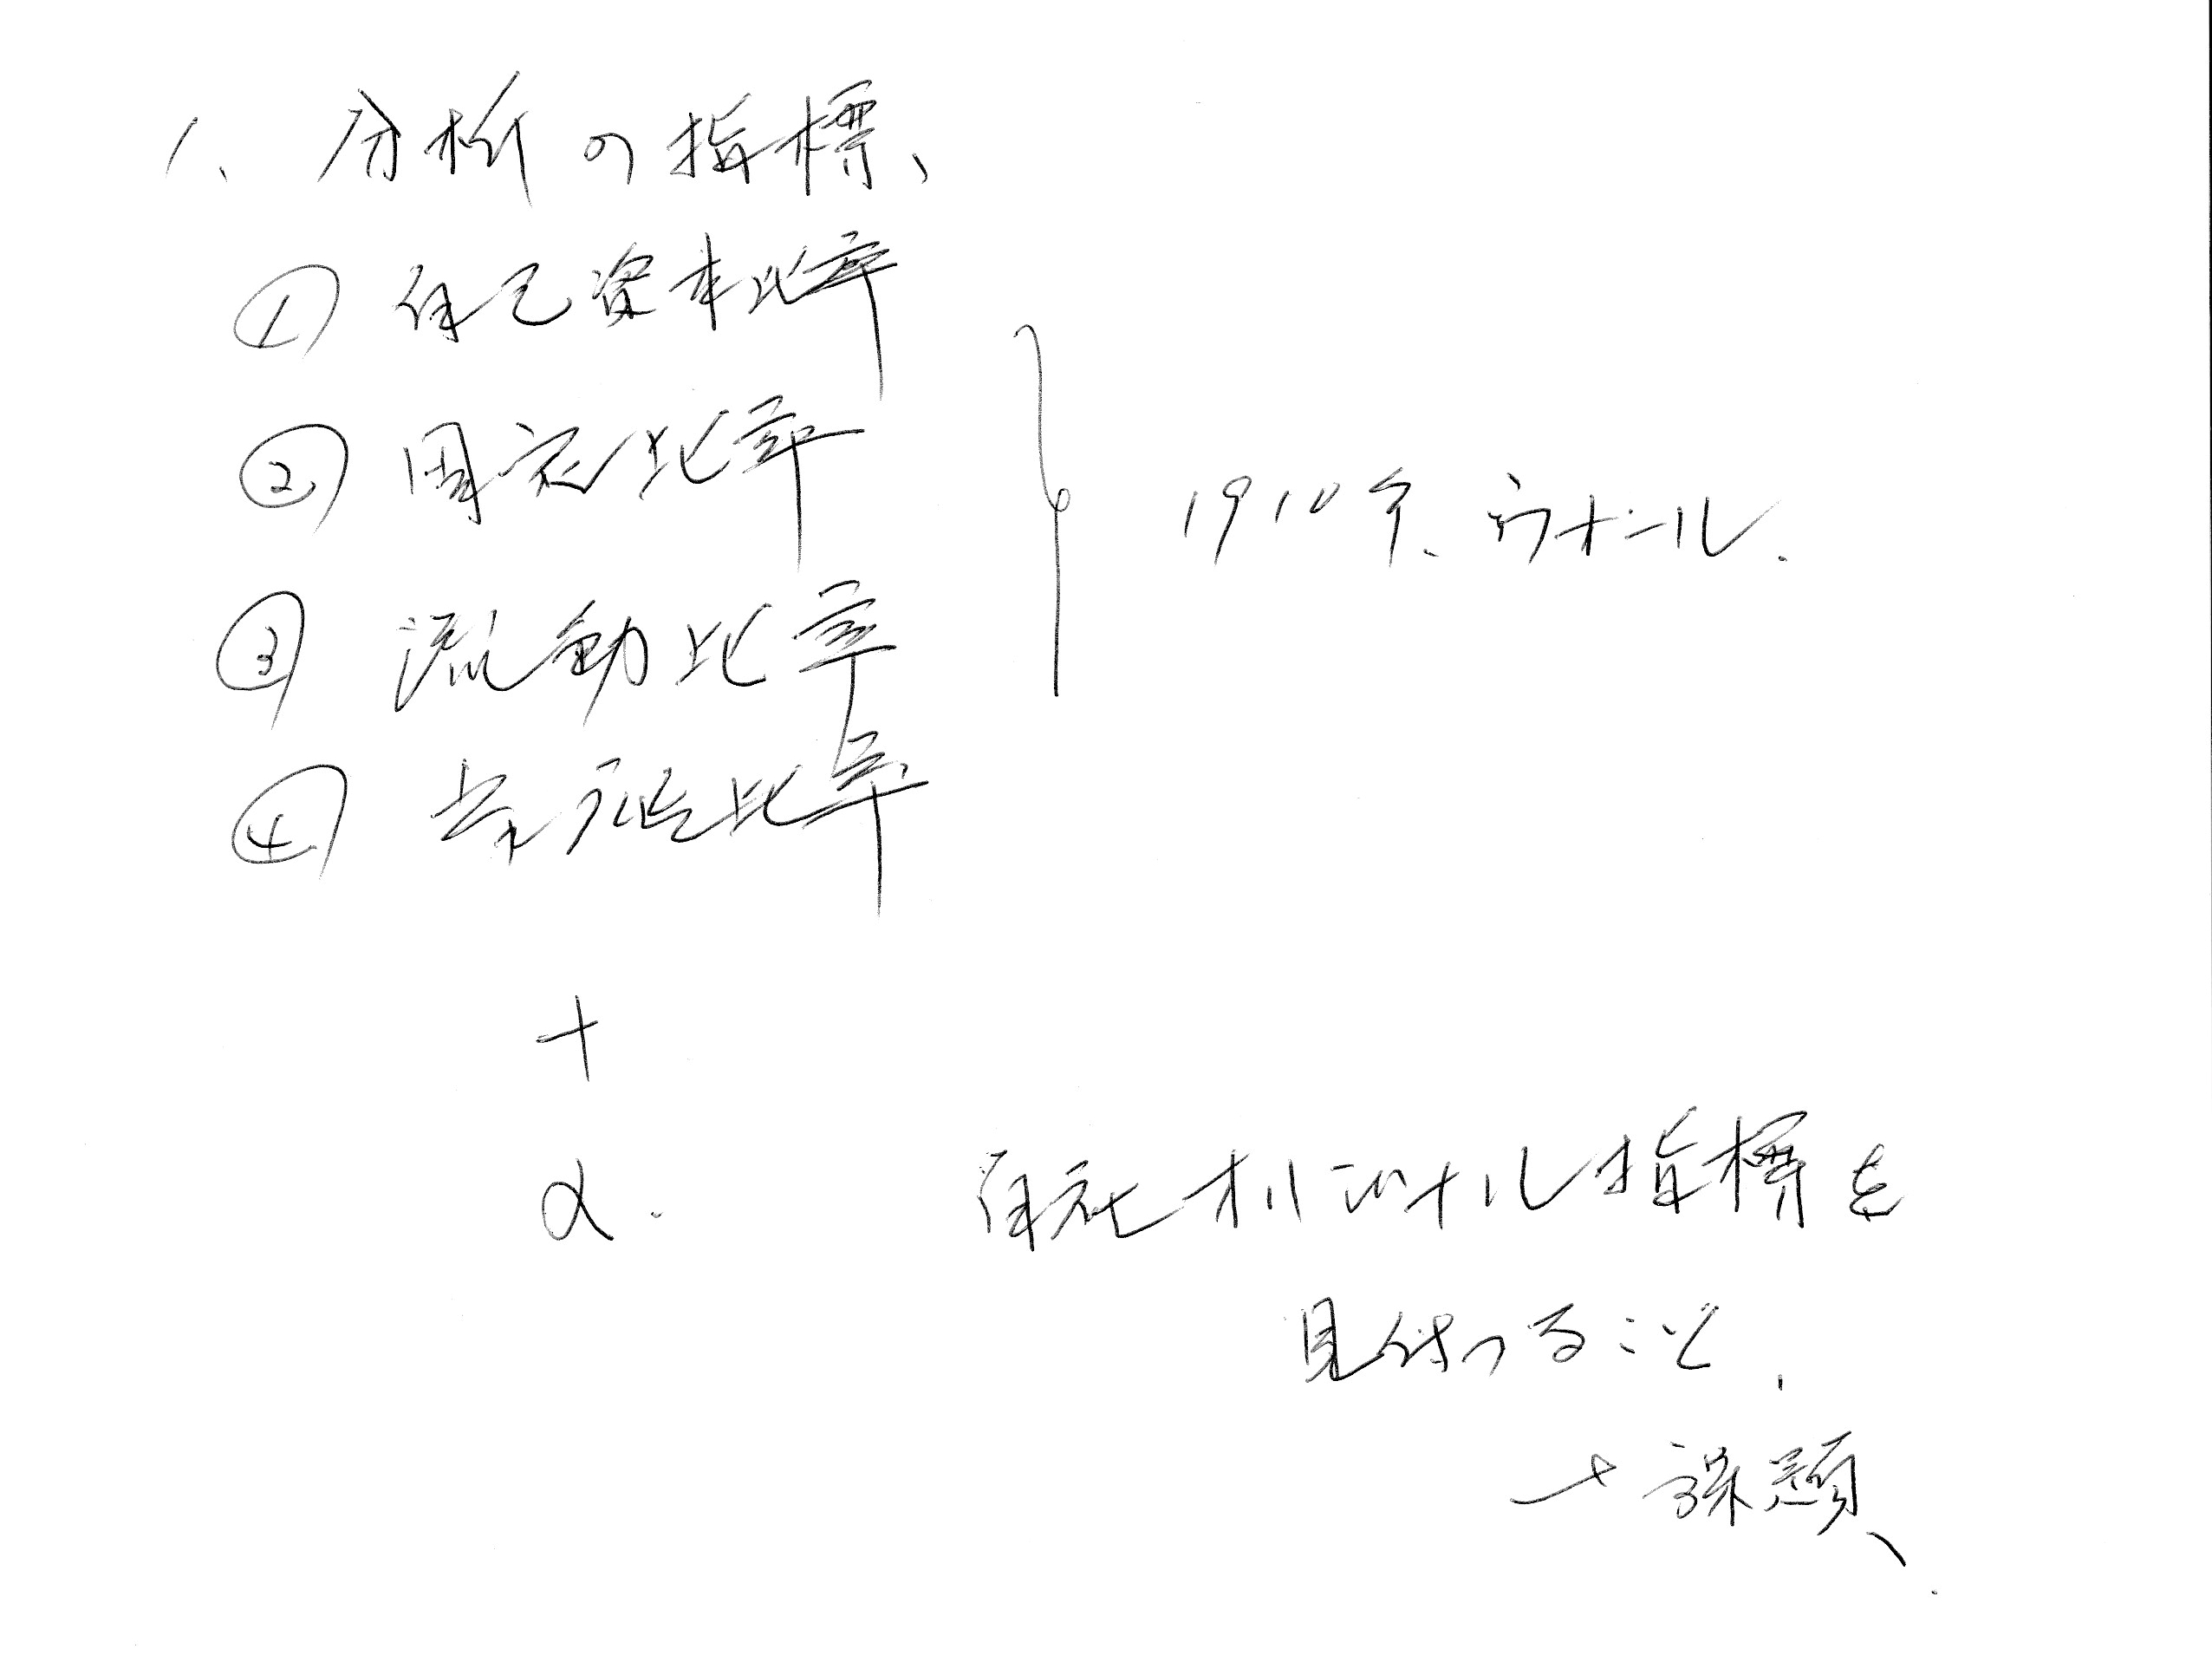 1、分析の指標、
① 自己資本比率
② 固定比率
③ 流動比率
1910年、ウオール.
④ 当座比率
+
α.
自社オリジナル指標を
見付つること、
→課題、